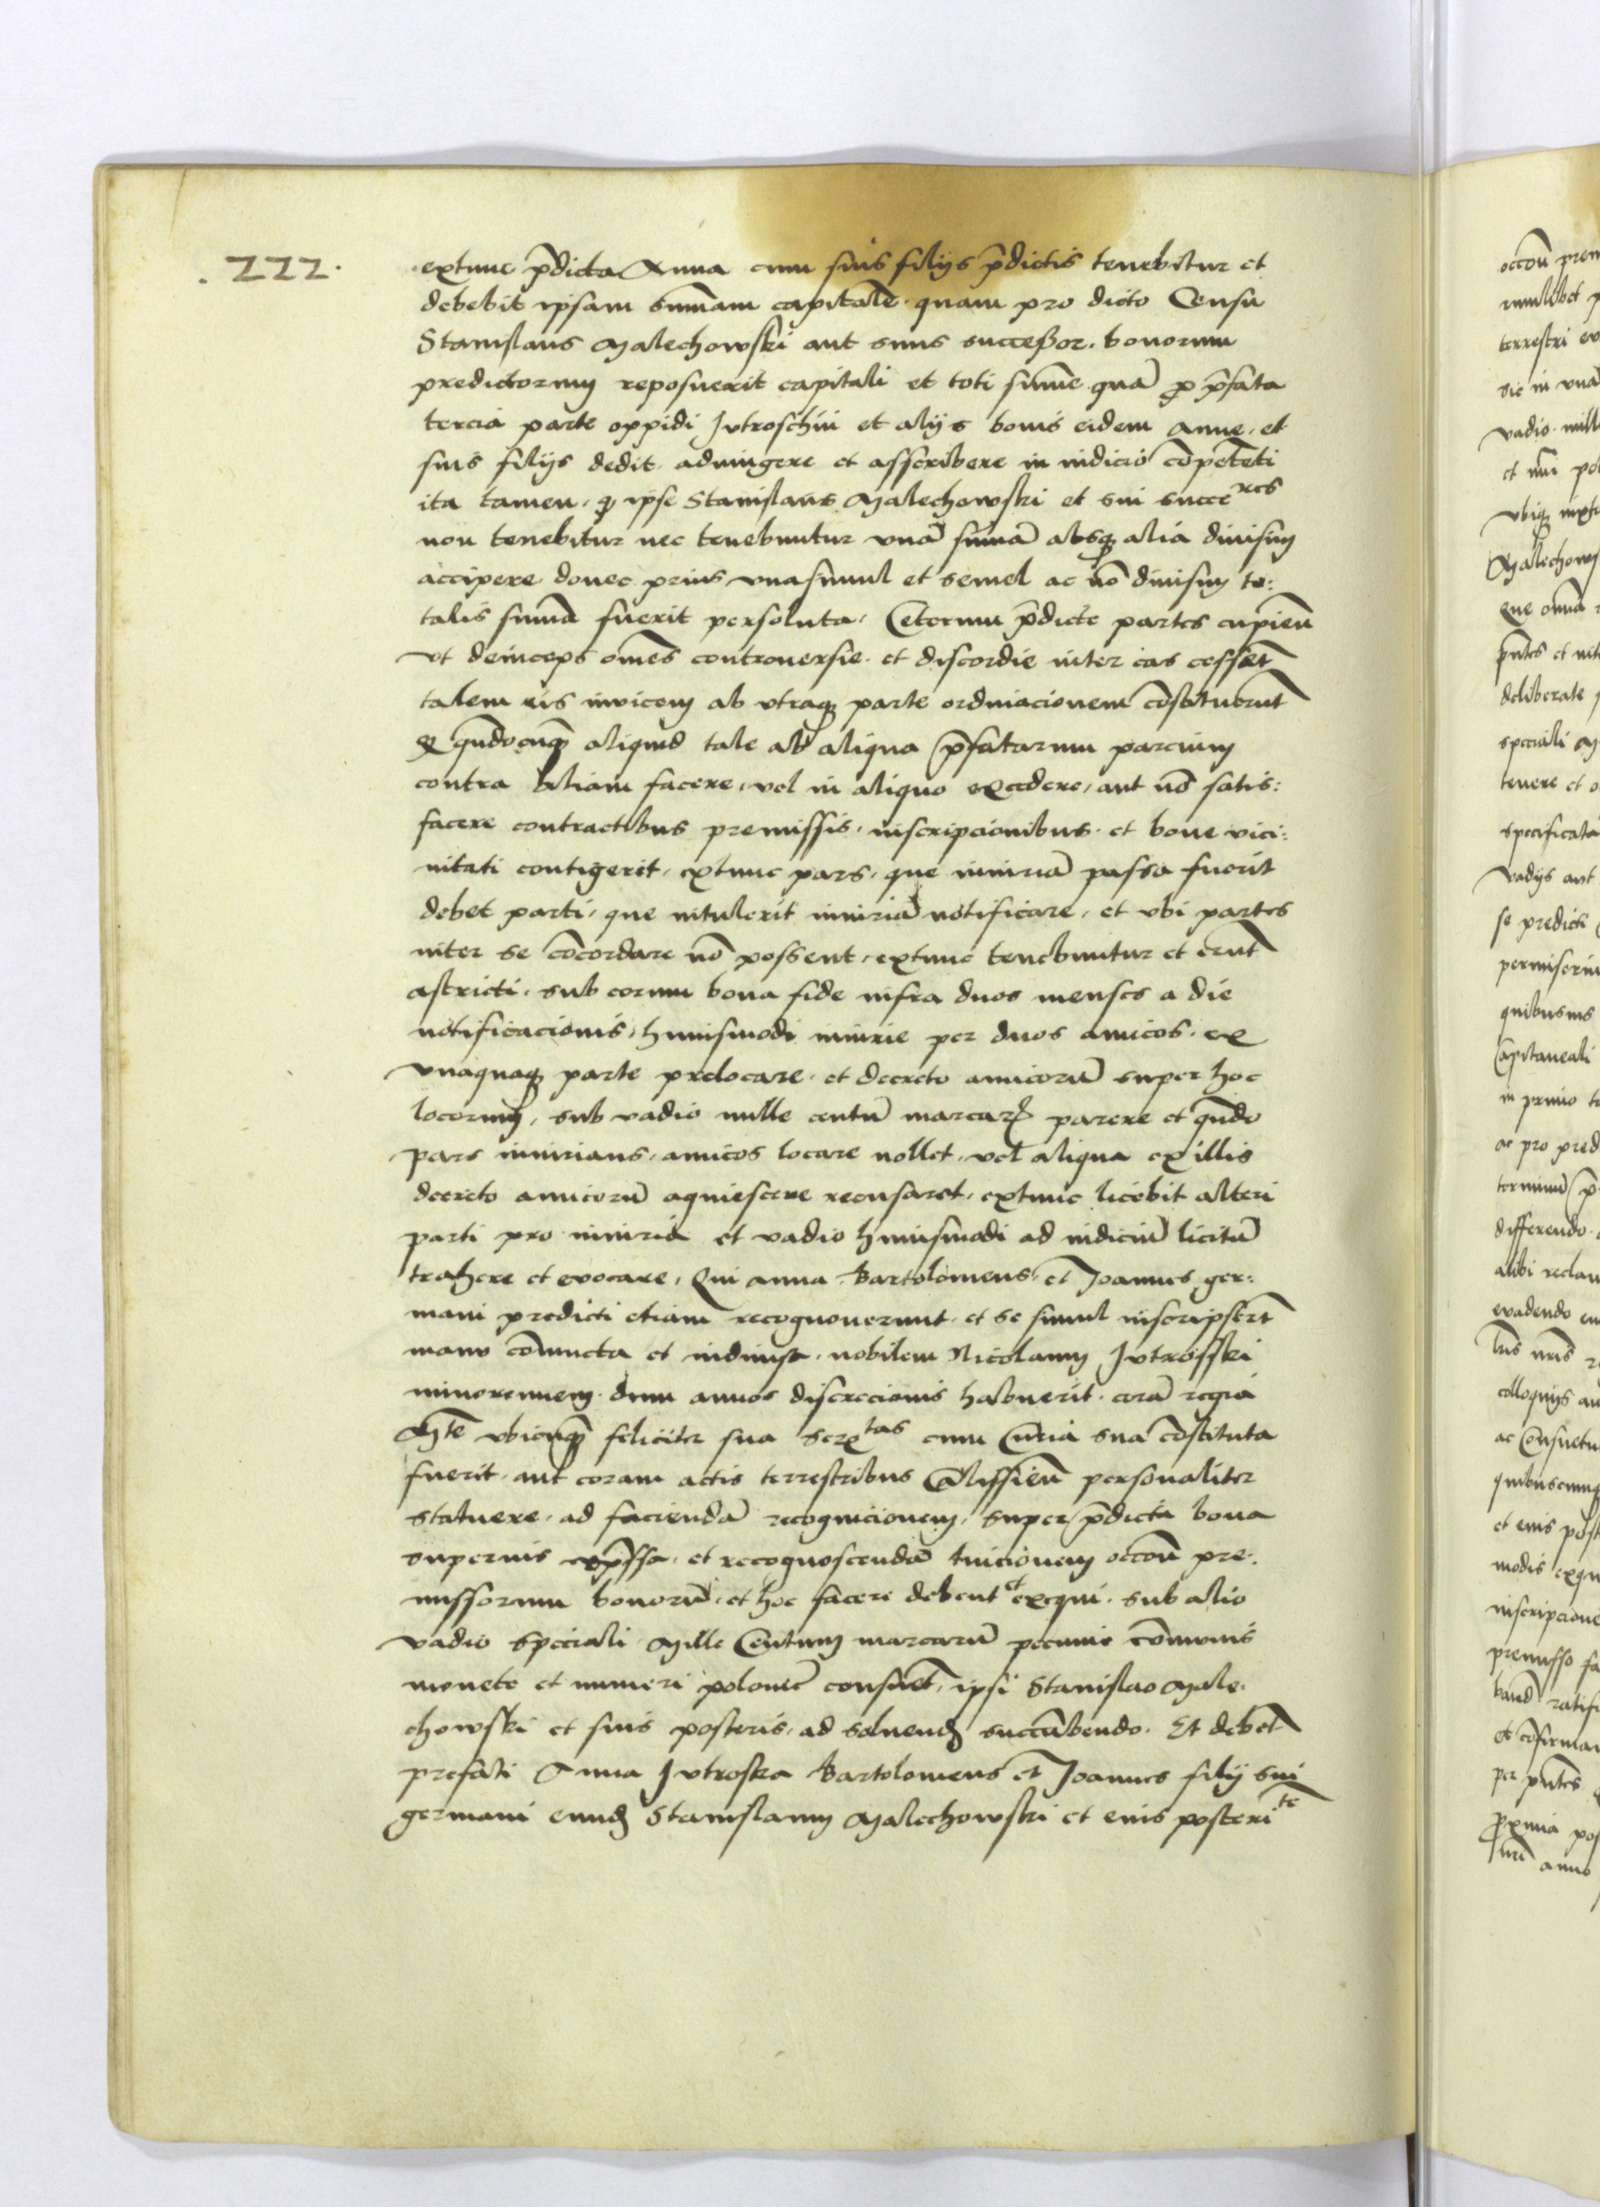 . 222 .
extunc p̄dicta Anna cum suis filijs p̄dictis tenebitur et
debebit ipsam summam capitalē quam pro dicto Censu
Stanislaus Malechowski aut suus successor bonorum
predictorum reposuerit capitali et toti summe quā ꝓ p̄fata
tercia parte oppidi Jutroschin et alijs bonis eidem Anne et
suis filijs dedit adiungere et asscribere in iudicio cōpetēti
ita tamen, ꝙ ipse Stanislaus Malechowski et sui succeres
non tenebitur nec tenebuntur unā sum̄ā absqꝫ alia diuisim
accipere donec prius unasimul et semel ac nō diuisim to:
talis sum̄a fuerit persoluta, Ceterum p̄dicte partes cupien̄
ut deinceps om̄es controuersie et discordie inter eas cessēt
talem eis inuicem ab utraqꝫ parte ordinacionem cōstituerūt
ꝙ qn̄docūqꝫ aliquid tale ab aliqua p̄fatarum parcium
contra aliam facere, vel in aliquo excedere, aut nō satis:
facere contractibus premissis, inscripcionibus et bone vici:
nitati contigerit, extunc pars, que iniuriā passa fuerit
debet parti, que intulerit iniuriā notificare, et ubi partes
inter se cōcordare nō possent, extunc tenebuntur et erūt
astricti, sub eorum bona fide infra duos menses a die
notificacionis, huiusmodi iniurie per duos amicos ex
unaquaqꝫ parte prelocare et decreto amicorū super hoc
locorum, sub vadio mille centū marcarꝝ parere et qn̄do
pars iniurians, amicos locare nollet, vel aliqua ex illis
decreto amicorū aquiescere recusaret, extunc licebit alteri
parti pro iniuria et vadio huiusmodi ad iudiciū licitū
trahere et evocare, Qui Anna Bartolomeus et Joannes ger:
mani predicti etiam recognouerunt et se simul inscripserūt
manu cōiuncta et indiuisa nobilem Nicolaum Jutrosski
minorennem dum annos discrecionis habuerit corā regia
Mte ubicūqꝫ feliciter sua sertas cum Curia sua cōstituta
fuerit aut coram actis terrestribus Calissien̄ personaliter
statuere, ad faciendā recognicionem, super p̄dicta bona
superius exp̄ssa, et recognoscendā tuicionem occōn̄ pre:
missorum bonorū, et hoc facere debent et exequi sub alio
vadio speciali Mille Centum marcarū pecunie cōmunis
monete et numeri polonic̄ consuet̄, ipsi Stanislao Male:
chowski et suis posteris, ad soluendꝫ succūbendo. Et debēt
prefati Anna Jutroska Bartolomeus et Joannes filij sui
germani eundꝫ Stanislaum Malechowski et eius posterite